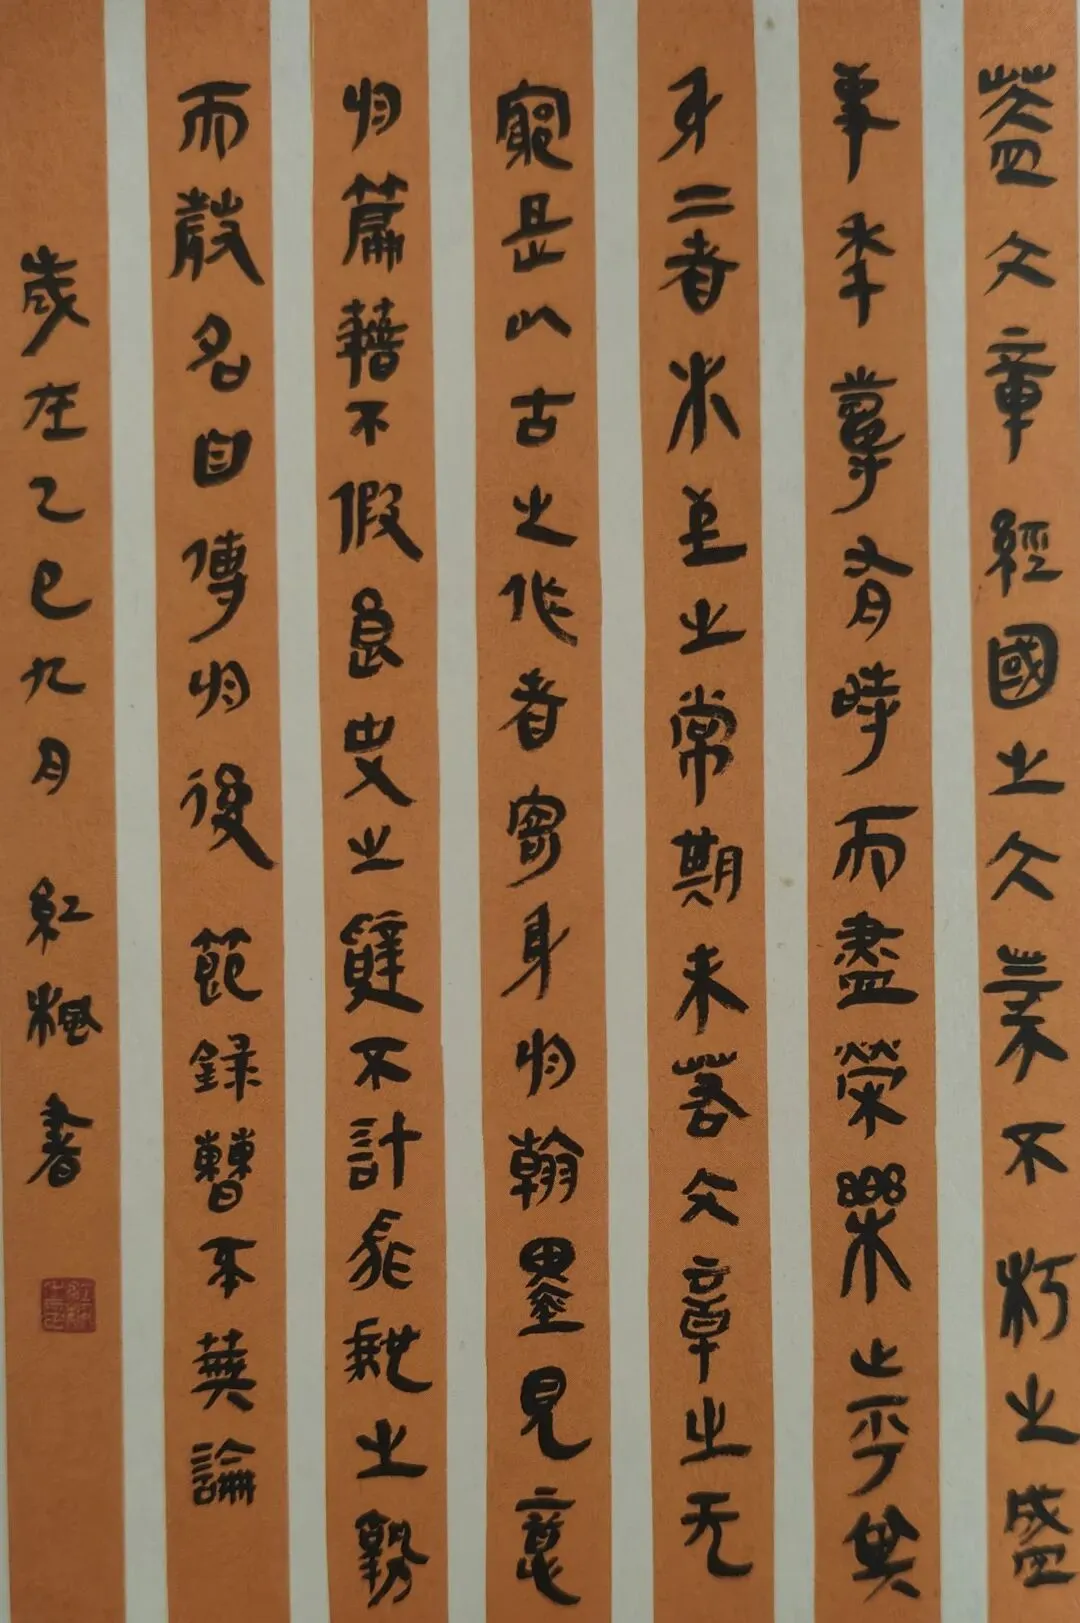 蓋文章經國之大業不朽之盛
事年壽有時而盡榮樂止乎其
身二者必至之常期未若文章之无
窮是以古之作者寄身於翰墨見意
於篇籍不假良史之辭不託飛馳之勢
而聲名自傳於後 節錄曹丕典論
歲在乙巳九月 紅楓書